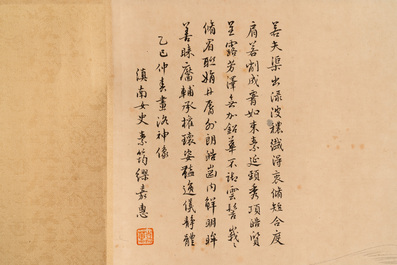 若芙渠出淥波穠纖得衷脩短合度
肩若削成胥如束素延頸秀項皓質
呈露芳澤無加鉛華不御雲髻峩〻
脩眉聯娟丹脣外朗皓齒內鮮明眸
善睞靨輔承權瓌姿豔逸儀靜體
乙巳仲春畫洛神像
滇南女史素筠繆嘉惠